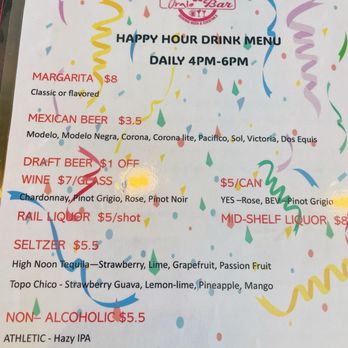 Bar
HAPPY HOUR DRINK MENU
DAILY 4PM-6PM
MARGARITA $8
Classic or flavored
MEXICAN BEER $3.5
Modelo, Modelo Negra, Corona, Corona lite, Pacifico, Sol, Victoria, Dos Equis
DRAFT BEER $1 OFF
WINE $7/GLASS $5/CAN
Chardonnay, Pinot Grigio, Rose, Pinot Noir YES –Rose, BEV–Pinot Grigio
RAIL LIQUOR $5/shot MID-SHELF LIQUOR $8
SELTZER $5.5
High Noon Tequila—Strawberry, Lime, Grapefruit, Passion Fruit
Topo Chico - Strawberry Guava, Lemon-lime, Pineapple, Mango
NON– ALCOHOLIC $5.5
ATHLETIC - Hazy IPA